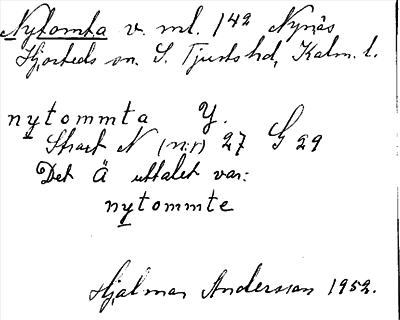 Nytomta v. ml. 142 Nynäs
Hjorteds sn. S. Tjusts hd, Kalm. l.
nytommta Y.
Strart N (n:r) 27 G 29
Det Ä uttalet var:
nytommte
Hjalmar Andersson 1952.